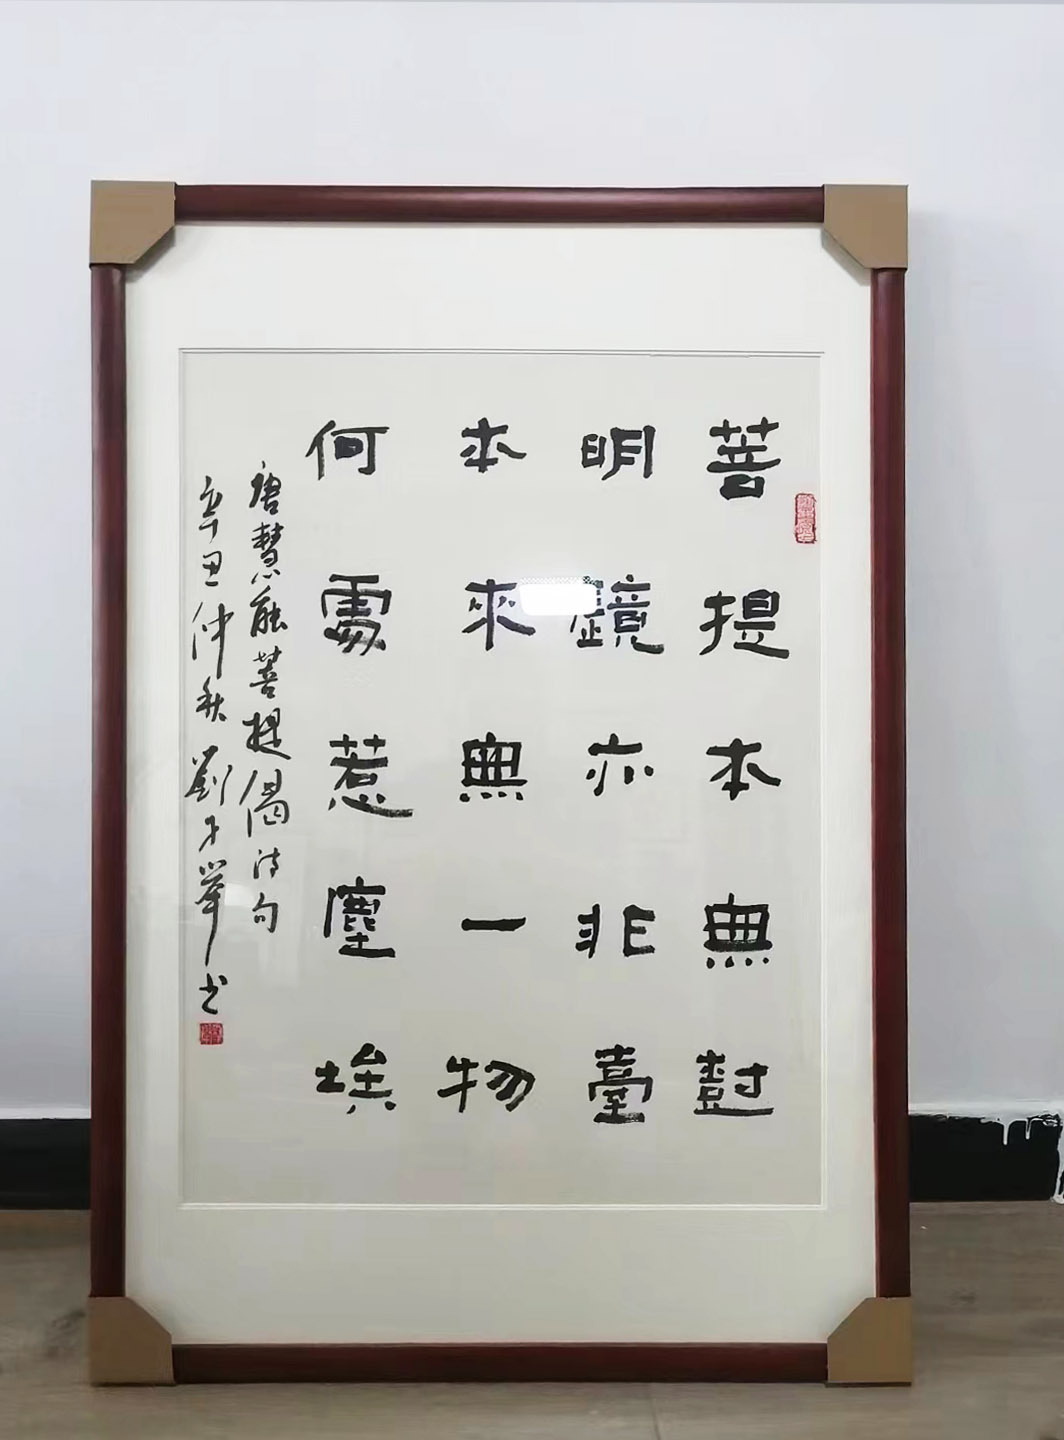 菩提本無樹
明鏡亦非臺
本來無一物
何處惹塵埃
唐慧能菩提偈詩句
辛丑仲秋劉子舉书